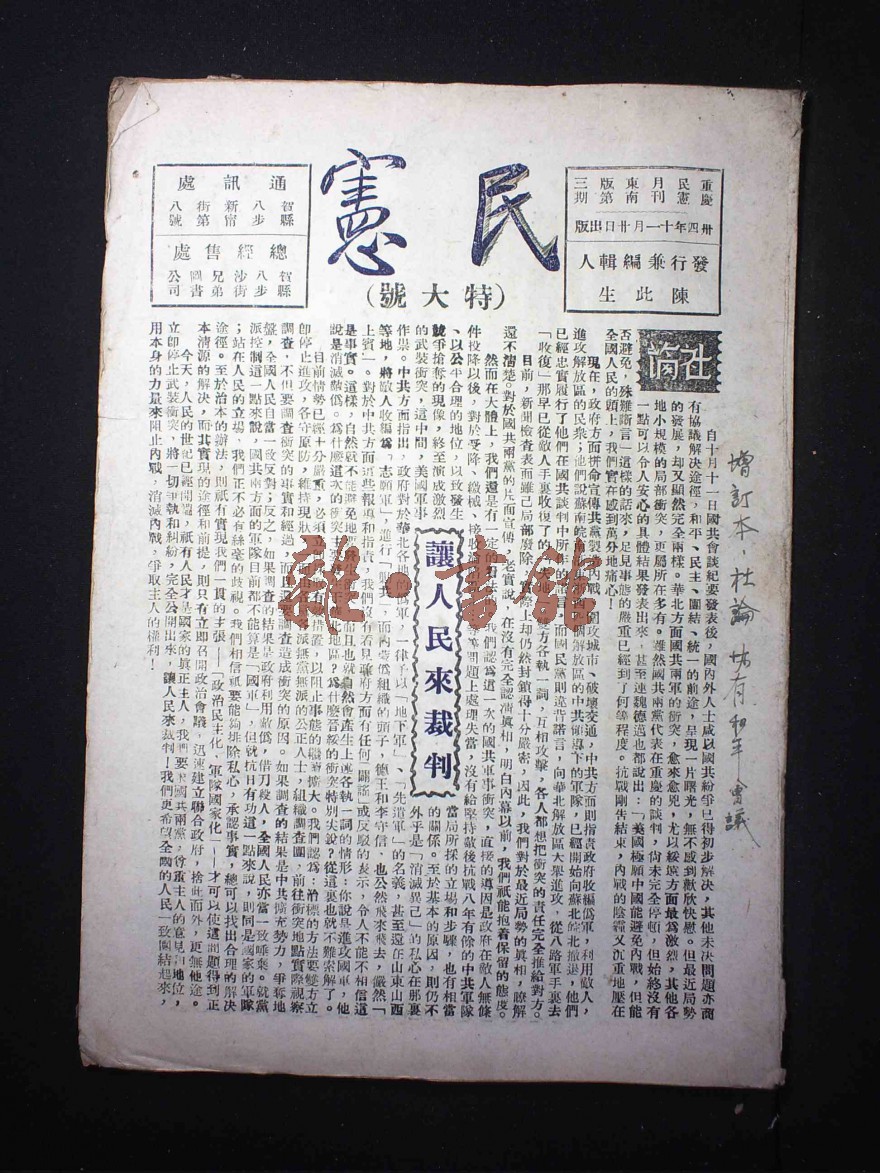 重慶民憲月刊東南版第三期
卅四年十一月廿日出版
發行兼編輯人
陳此生
民憲
(特大號)
通訊處
賀縣八步新甯街第八號
總經售處
賀縣八步沙街兄弟圖書公司
社論
讓人民來裁判
自十月十一日國共會談紀要發表後，國內外人士咸以國共紛爭已得初步解決，其他未決問題亦商
有協議解決途徑，和平、民主、團結、統一的前途，呈現一片曙光，無不感到歡欣快慰。但最近局勢
的發展，却又顯然完全兩樣。華北方面國共兩軍的衝突，愈來愈兇，尤以綏遠方面最爲激烈，其他各
地小規模的局部衝突，更屬所在多有。雖然國共兩黨代表在重慶的談判，尙未完全停頓，但始終沒有
一點可以令人安心的具體結果發表出來。甚至連魏德邁也都說出：「美國極願中國能避免內戰，但能
否避免，殊難斷言」這樣的話來，足見事態的嚴重已經到了何等程度。抗戰剛告結束，內戰的陰霾又沉重地壓在
全國人民的頭上，我們實在感到萬分地痛心！
現在，政府方面拼命宣傳共黨製造內戰，圍攻城市、破壞交通，中共方面則指責政府收編僞軍，利用敵人，
進攻解放區的民衆；他們說蘇南皖南浙東浙西四個解放區的中共領導下的軍隊，已經開始向蘇北皖北撤退，他們
已經忠實履行了他們在國共談判中所作的諾言，而國民黨則違背諾言，向華北解放區大舉進攻，從八路軍手裏去
「收復」那早已從敵人手裏收復了的土地。雙方各執一詞，互相攻擊，各人都想把衝突的責任完全推給對方。
目前，新聞檢查表面雖已局部廢除，實際上却仍然封鎖得十分嚴密，因此，我們對於最近局勢的眞相，瞭解
還不淸楚。對於國共兩黨的片面宣傳，老實說，在沒有完全認淸眞相，明白內幕以前，我們祇能抱着保留的態度。
然而在大體上，我們還是有一定的看法。我們認爲這一次的國共軍事衝突，直接的導因是政府在敵人無條
件投降以後，對於受降、繳械、接收淪陷區等等問題上處理失當，沒有給堅持敵後抗戰八年有餘的中共軍隊
、以公平合理的地位，以致發生
競爭搶奪的現像，終至演成激烈
的武裝衝突，這中間，美國軍事
當局所採的立場和步驟，也有相當
的關係。至於基本的原因，則仍不
外乎是「消滅異己」的私心在那裏
作祟。中共方面指出，政府對於華北各地的僞軍，一律予以「地下軍」、「先遣軍」的名義，甚至還在山東山西
等地，將敵人收編爲「志願軍」，進行「剿共」，而內蒙僞組織的頭子，德王和李守信，也公然飛來飛去，儼然「
上賓」。對於中共方面這些報導和指責，我們沒有看見政府方面有任何「闢謠」或反駁的表示，令人不能不相信這
是事實。這樣，自然就不能避免地要發生衝突，而且也就顯然會產生上述各執一詞的情形：你說是進攻國軍，他
說是消滅敵僞。爲什麼這次的衝突要在華北地區？爲什麼晉綏的衝突特別尖銳？從這裏也就不難索解了。
目前情勢已經十分嚴重，必須立即採取有效措置，以阻止事態的繼續擴大。我們認爲：治標的方法要雙方立
即停止進攻，各守原防，維持現狀，由各黨各派無黨無派的公正人士，組織調查團，前往衝突地點實際視察
調查，不但要調查衝突的事實和經過，而且要調查造成衝突的原因。如果調查的結果是中共擴充勢力，爭奪地
盤，全國人民自當一致反對；反之，如果調查的結果是政府利用敵僞，借刀殺人，全國人民亦當一致唾棄。就黨
派控制這一點來說，國共兩方面的軍隊目前都不能算是「國軍」，但就抗日有功這一點來說，則同是國家的軍隊
；站在人民的立場，我們正不必有絲毫的歧視。我們相信祇要能夠排除私心，承認事實，總可以找出合理的解決
途徑。至於治本的辦法，則祇有實現我們一貫的主張——「政治民主化，軍隊國家化」——才可以使這問題得到正
本淸源的解決，而其實現的途徑和前提，則只有立即召開政治會議，迅速建立聯合政府，捨此而外，更無他途。
今天，人民的世紀已經開始，祇有人民才是國家的眞正主人，我們要求國共兩黨，尊重主人的意見和地位，
立即停止武裝衝突，將一切爭執和糾紛，完全公開出來，讓人民來裁判！我們更希望全國的人民一致團結起來，
用本身的力量來阻止內戰，消滅內戰，爭取主人的權利！
增訂本·社論
和平會議
雜·書館